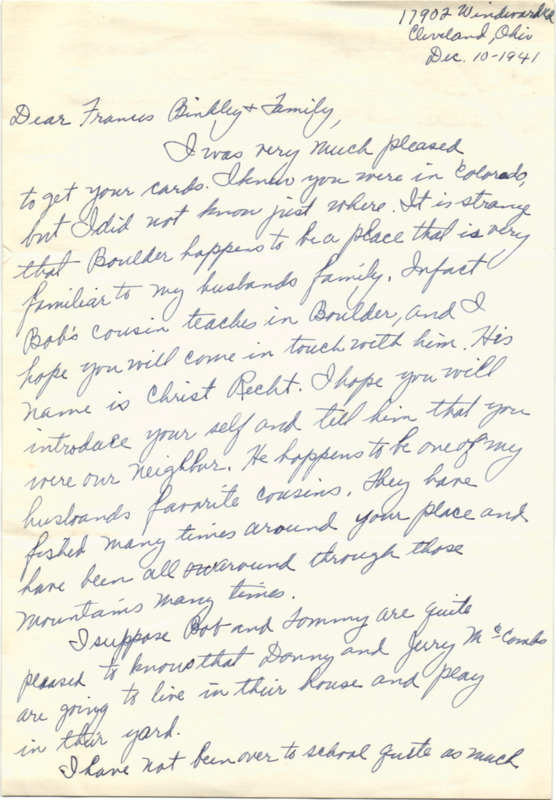 17902 Windward Rd
Cleveland, Ohio
Dec. 10-1941
Dear Frances Binkley & Family,
I was very much pleased
to get your cards. I knew you were in Colorado,
but I did not know just where. It is strange
that Boulder happens to be a place that is very
familiar to my husbands family. Infact
Bob's cousin teaches in Boulder, and I
hope you will come in touch with him. His
name is Christ Recht. I hope you will
introduce your self and tell him that you
were our neighbur. He happens to be one of my
husbands favorite cousins. They have
fished many times around your place and
have been all around through those
Mountains many times.
I suppose Bob and Tommy are quite
pleased to know that Donny and Jerry McCombs
are going to live in their house and play
in their yard.
I have not been over to school quite as much